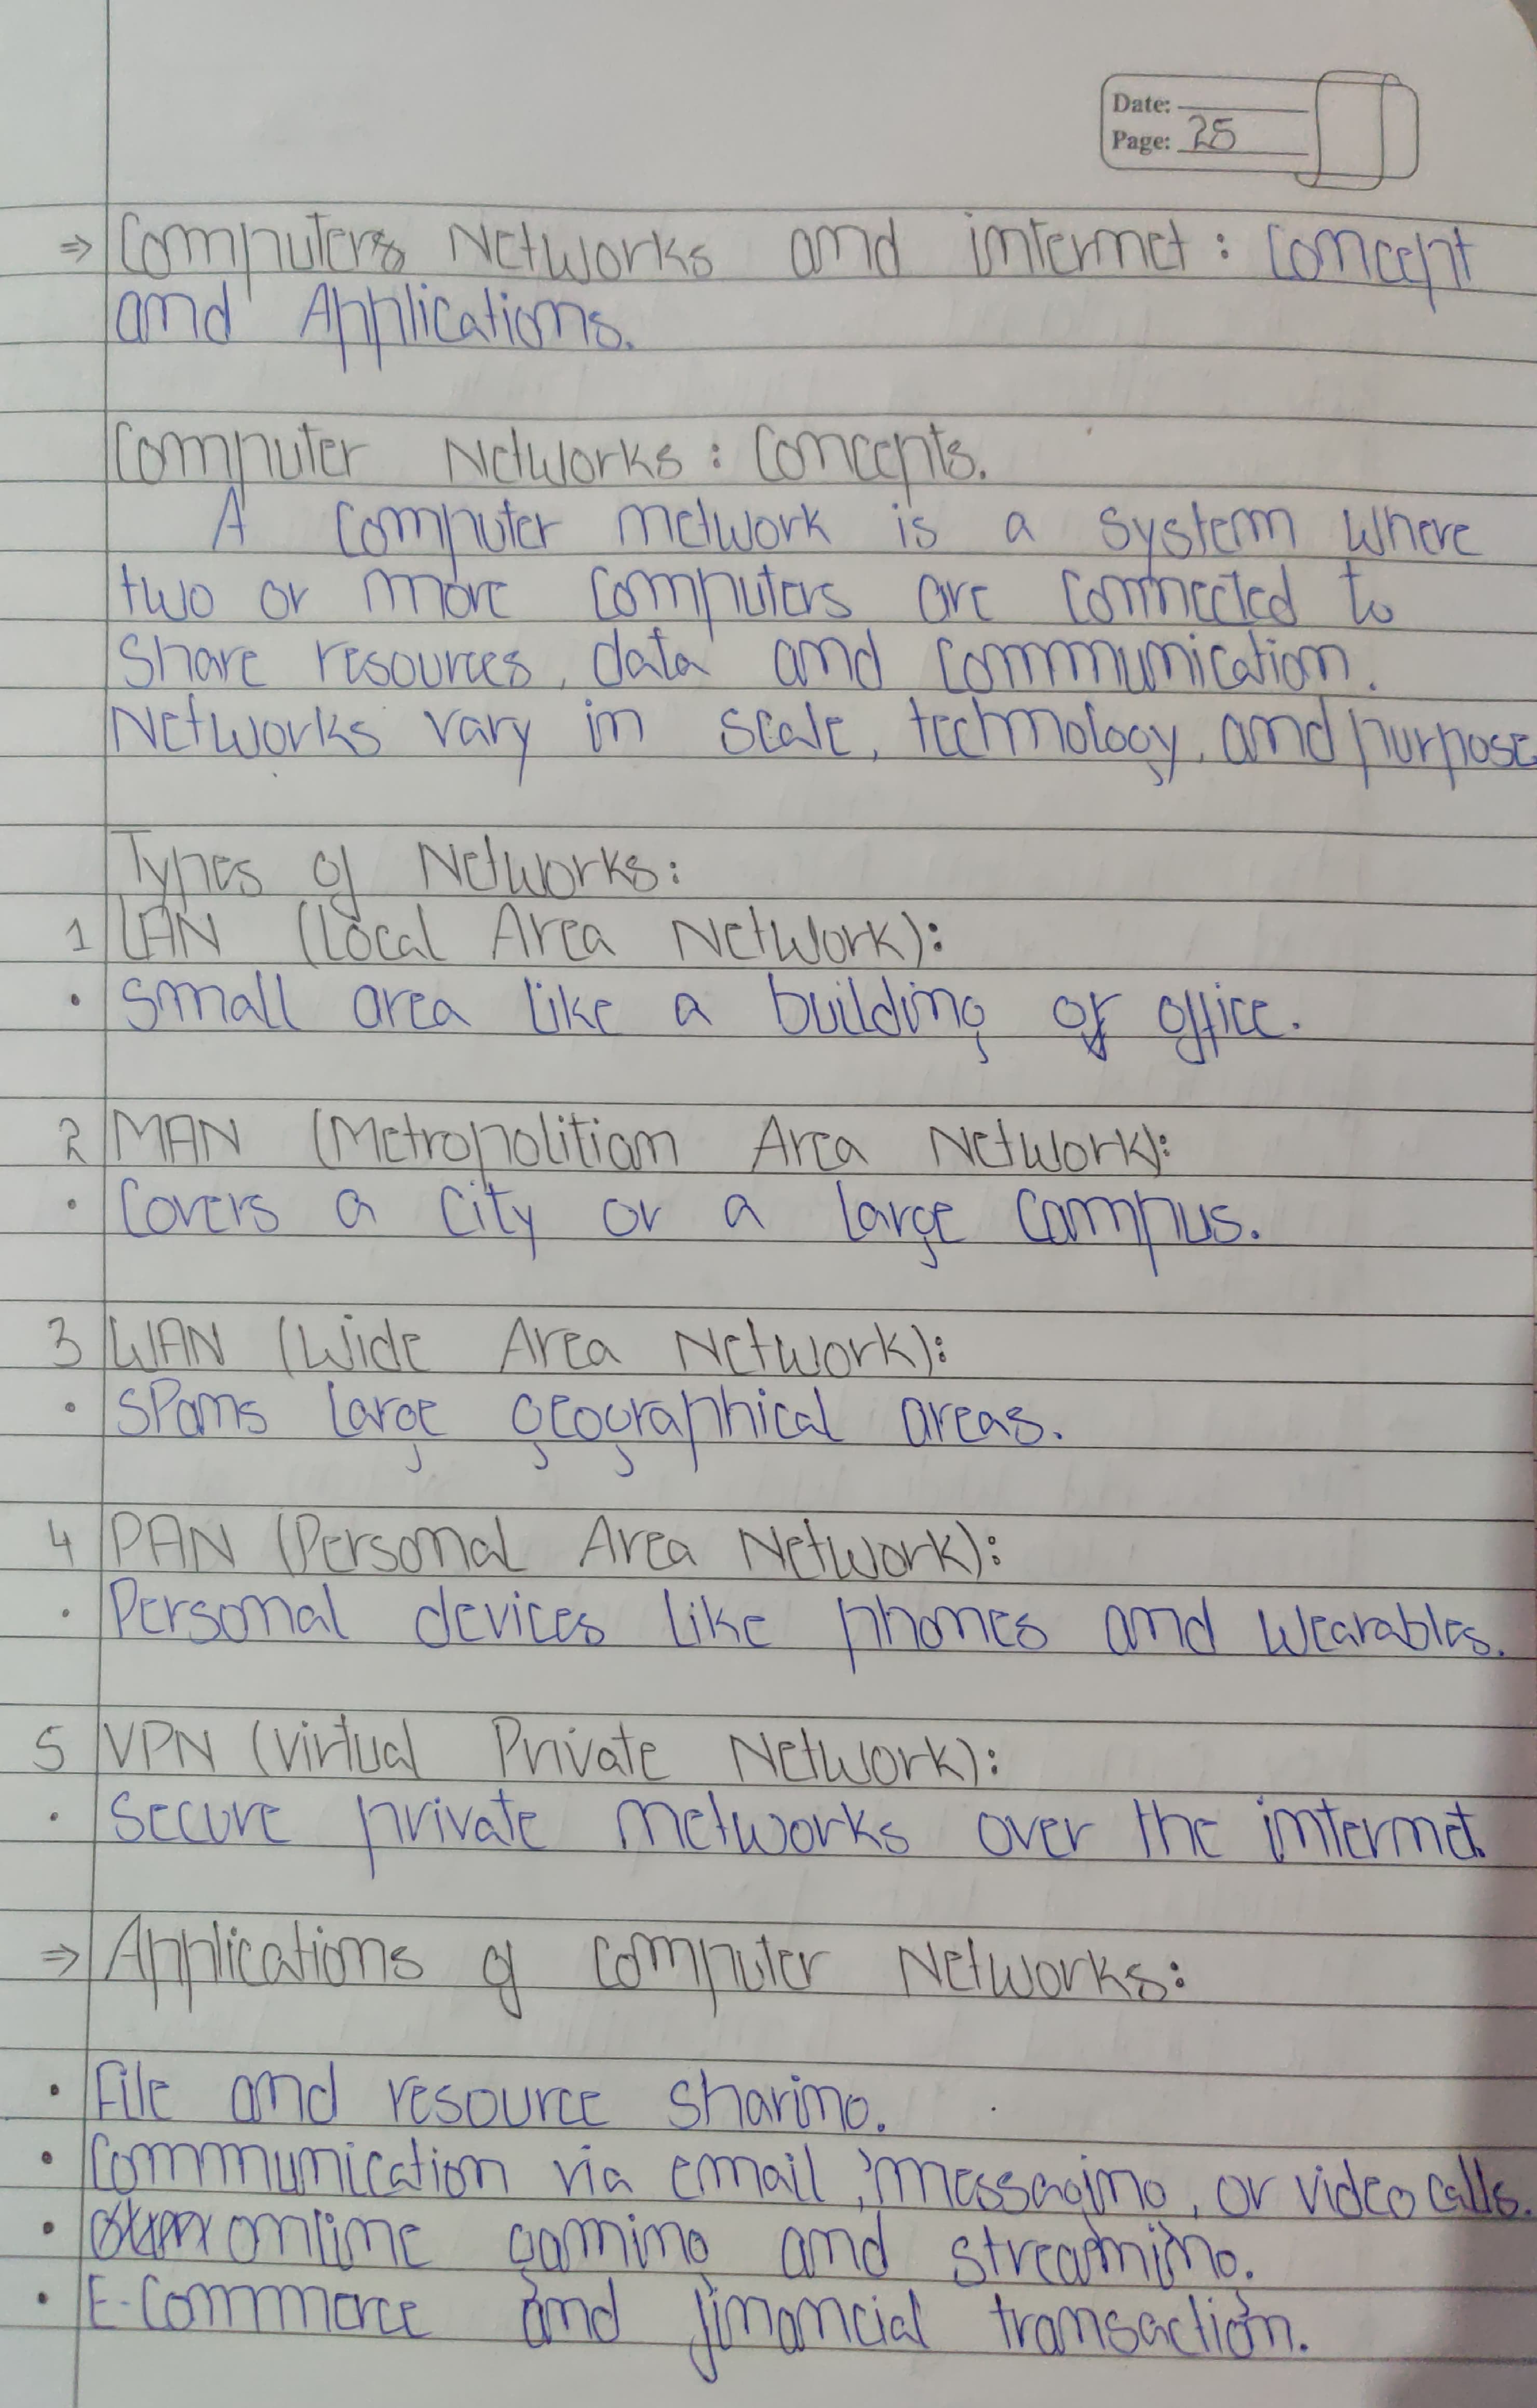 Date:
Page: 25
⇒ Computers Networks and internet : Concept
and Applications.
Computer Networks : Concepts.
A computer network is a system where
two or more computers are connected to
share resources, data and communication.
Networks vary in scale, technology, and purpose
Types of Networks:
1 LAN (Local Area Network):
• Small area like a building or office.
2 MAN (Metropolitian Area Network):
• Covers a city or a large campus.
3 WAN (Wide Area Network):
• Spans large geographical areas.
4 PAN (Personal Area Network):
• Personal devices like phones and wearables.
5 VPN (Virtual Private Network):
• Secure private networks over the internet.
⇒ Applications of Computer Networks:
• File and resource sharing.
• Communication via email, messaging, or video calls.
• online gaming and streaming.
• E-Commerce and financial transaction.